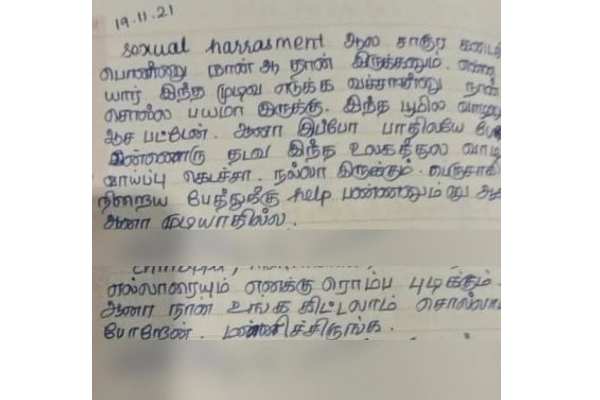 19.11.21
sexual harrasment ஆல சாகுற கடைசி
பொண்ணு நான் ஆ தான் இருக்கணும். என்ன
யார் இந்த முடிவ எடுக்க வச்சான்னு நான்
சொல்ல பயமா இருக்கு. இந்த பூமில வாழ
ஆச பட்டேன். ஆனா இப்போ பாதிலயே
இன்னொரு தடவ இந்த உலகத்துல
வாய்ப்பு கெடச்சா. நல்லா இருக்கும். பெருசாகி
நிறைய பேத்துக்கு help பண்ணனும்னு
ஆனா முடியாதில்ல.
எல்லாரையும் எனக்கு ரொம்ப புடிக்கும்.
ஆனா நான் உங்க கிட்டலாம்
போறேன். மன்னிச்சிருங்க.